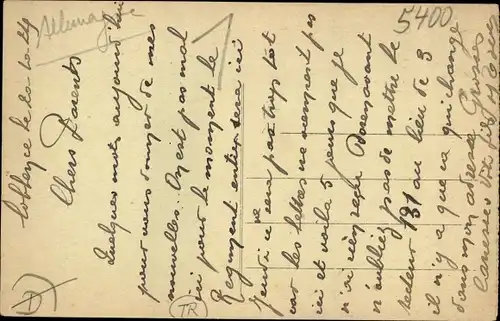 Allemagne
5400
Coblence le 20-10-29
Chers Parents
Quelques mots aujourd'hui
pour vous donner de mes
nouvelles. On est pas mal
ici pour le moment le
Regiment entier sera ici
jeudi ce ne sera pas trop tot
car les lettres ne viennent pas
ici et voila 5 jours que je
n'ai rien reçu Dorenavant
n'oubliez pas de mettre le
secteur 131 au lieu de 3
il n'y a que ca qui change
dans mon adresse
Caresses Vx fils
TR